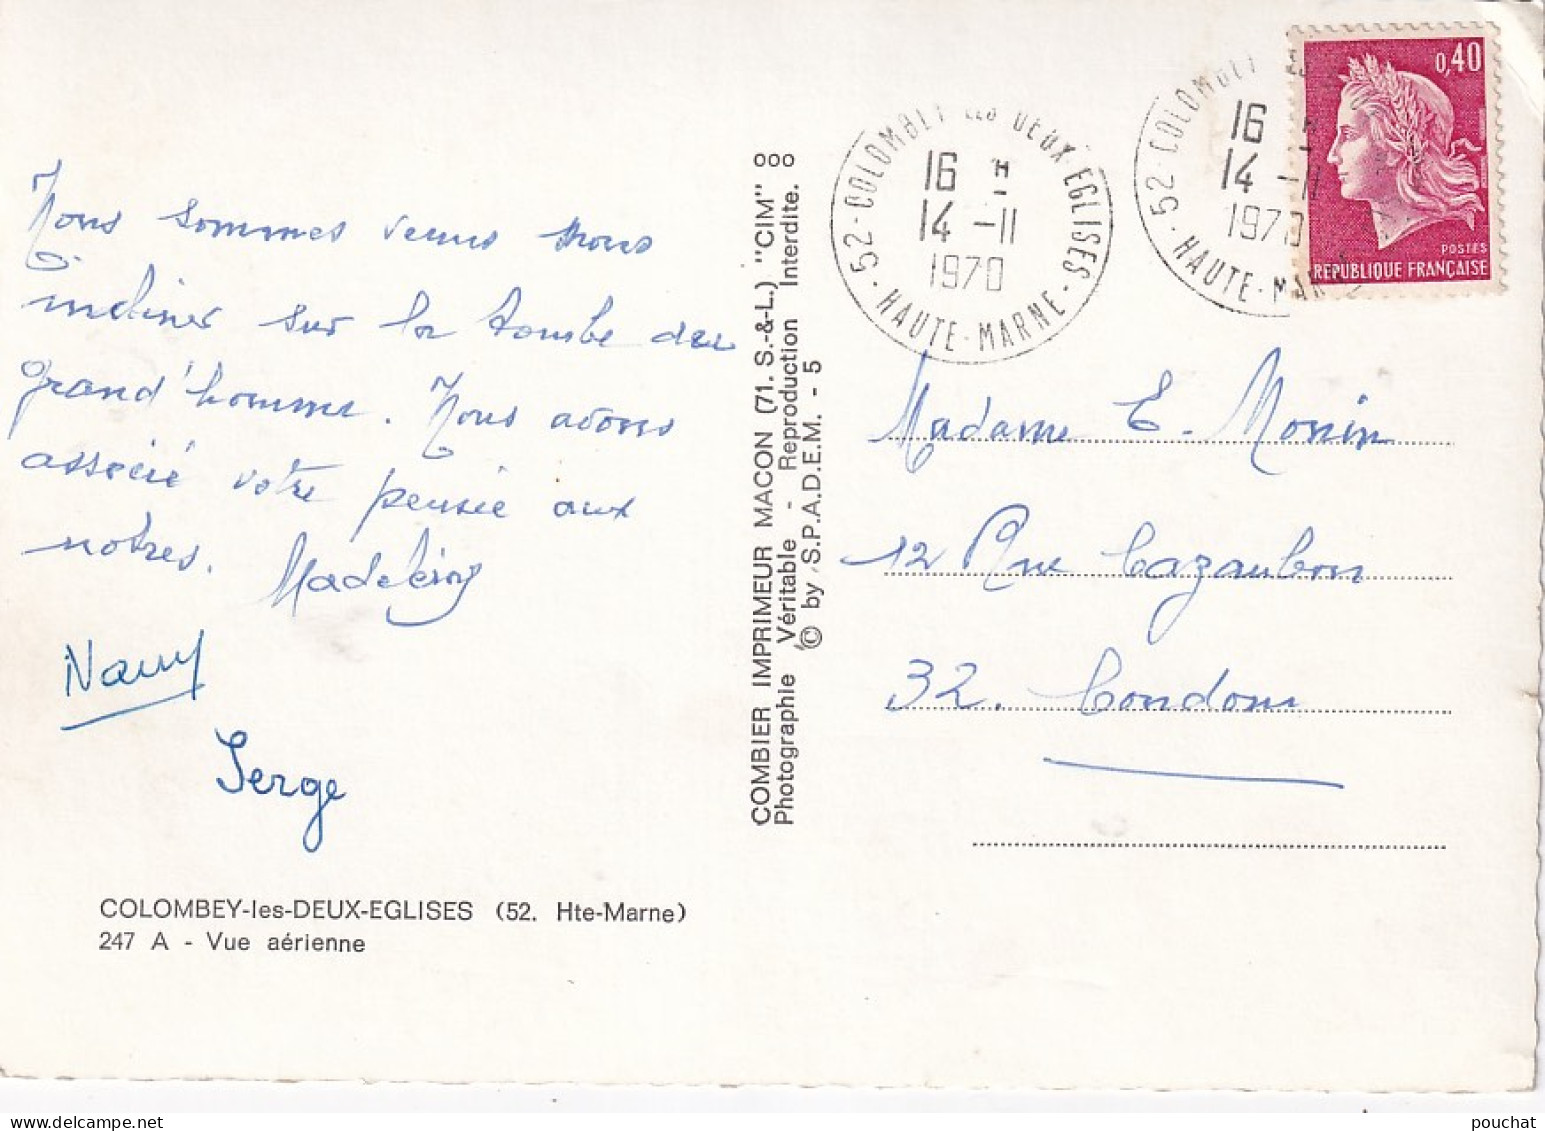 Nous sommes venus nous
incliner sur la tombe du
grand'homme. Nous avons
associé votre pensée aux
notres. Madeleine
Nany
Serge
COLOMBEY-les-DEUX-EGLISES (52. Hte-Marne)
247 A - Vue aérienne
COMBIER IMPRIMEUR MACON (71. S.-&-L.) "CIM" 000
Photographie Véritable - Reproduction Interdite.
© by S.P.A.D.E.M. - 5
52 - COLOMBEY LES DEUX EGLISES - HAUTE-MARNE -
16 H
14 -11
1970
52 - COLOMBEY
HAUTE-MARNE
16 H
14 -11
1970
0,40
POSTES
REPUBLIQUE FRANÇAISE
Madame E. Monin
12 Rue Cazaubon
32. Condom
pouchat